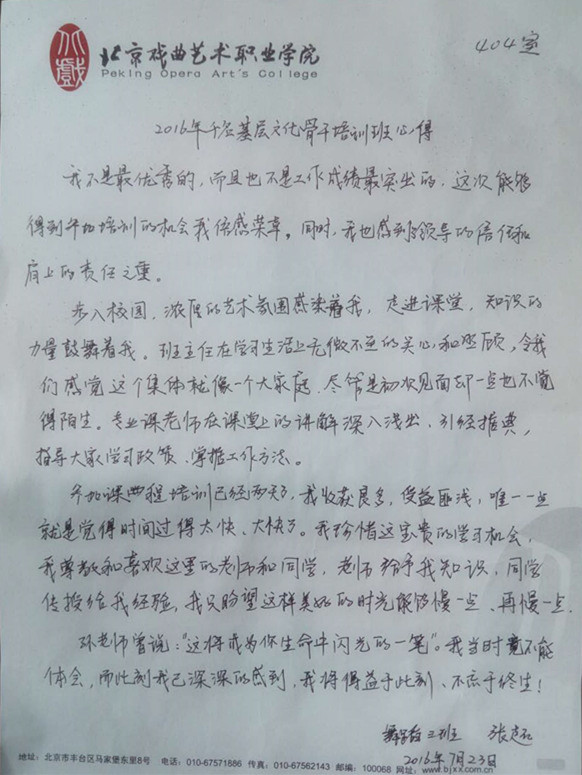 北京戏曲艺术职业学院
Peking Opera Art's College
404室
2016年千名基层文化骨干培训班心得
我不是最优秀的，而且也不是工作成绩最突出的，这次能够
得到参加培训的机会我倍感荣幸。同时，我也感到了领导的信任和
肩上的责任之重。
步入校园，浓厚的艺术氛围感染着我，走进课堂，知识的
力量鼓舞着我。班主任在学习生活上无微不至的关心和照顾，令我
们感觉这个集体就像一个大家庭、尽管是初次见面却一点也不觉
得陌生。专业课老师在课堂上的讲解深入浅出、引经据典，
指导大家学习政策、掌握工作方法。
参加课程培训已经两天了，我收获良多，受益匪浅，唯一一点
就是觉得时间过得太快、太快了。我珍惜这宝贵的学习机会，
我尊敬和喜欢这里的老师和同学，老师给予我知识，同学
传授给我经验，我只盼望这样美好的时光能够慢一点、再慢一点。
孙老师曾说："这将成为你生命中闪光的一笔"。我当时竟不能
体会，而此刻我已深深的感到，我将得益于此刻、不忘于终生！
舞蹈三班 张
2016年7月23日
地址：北京市丰台区马家堡东里8号 电话：010-67571886 传真：010-67562143 邮编：100068 网址：www.bjxx.com.cn